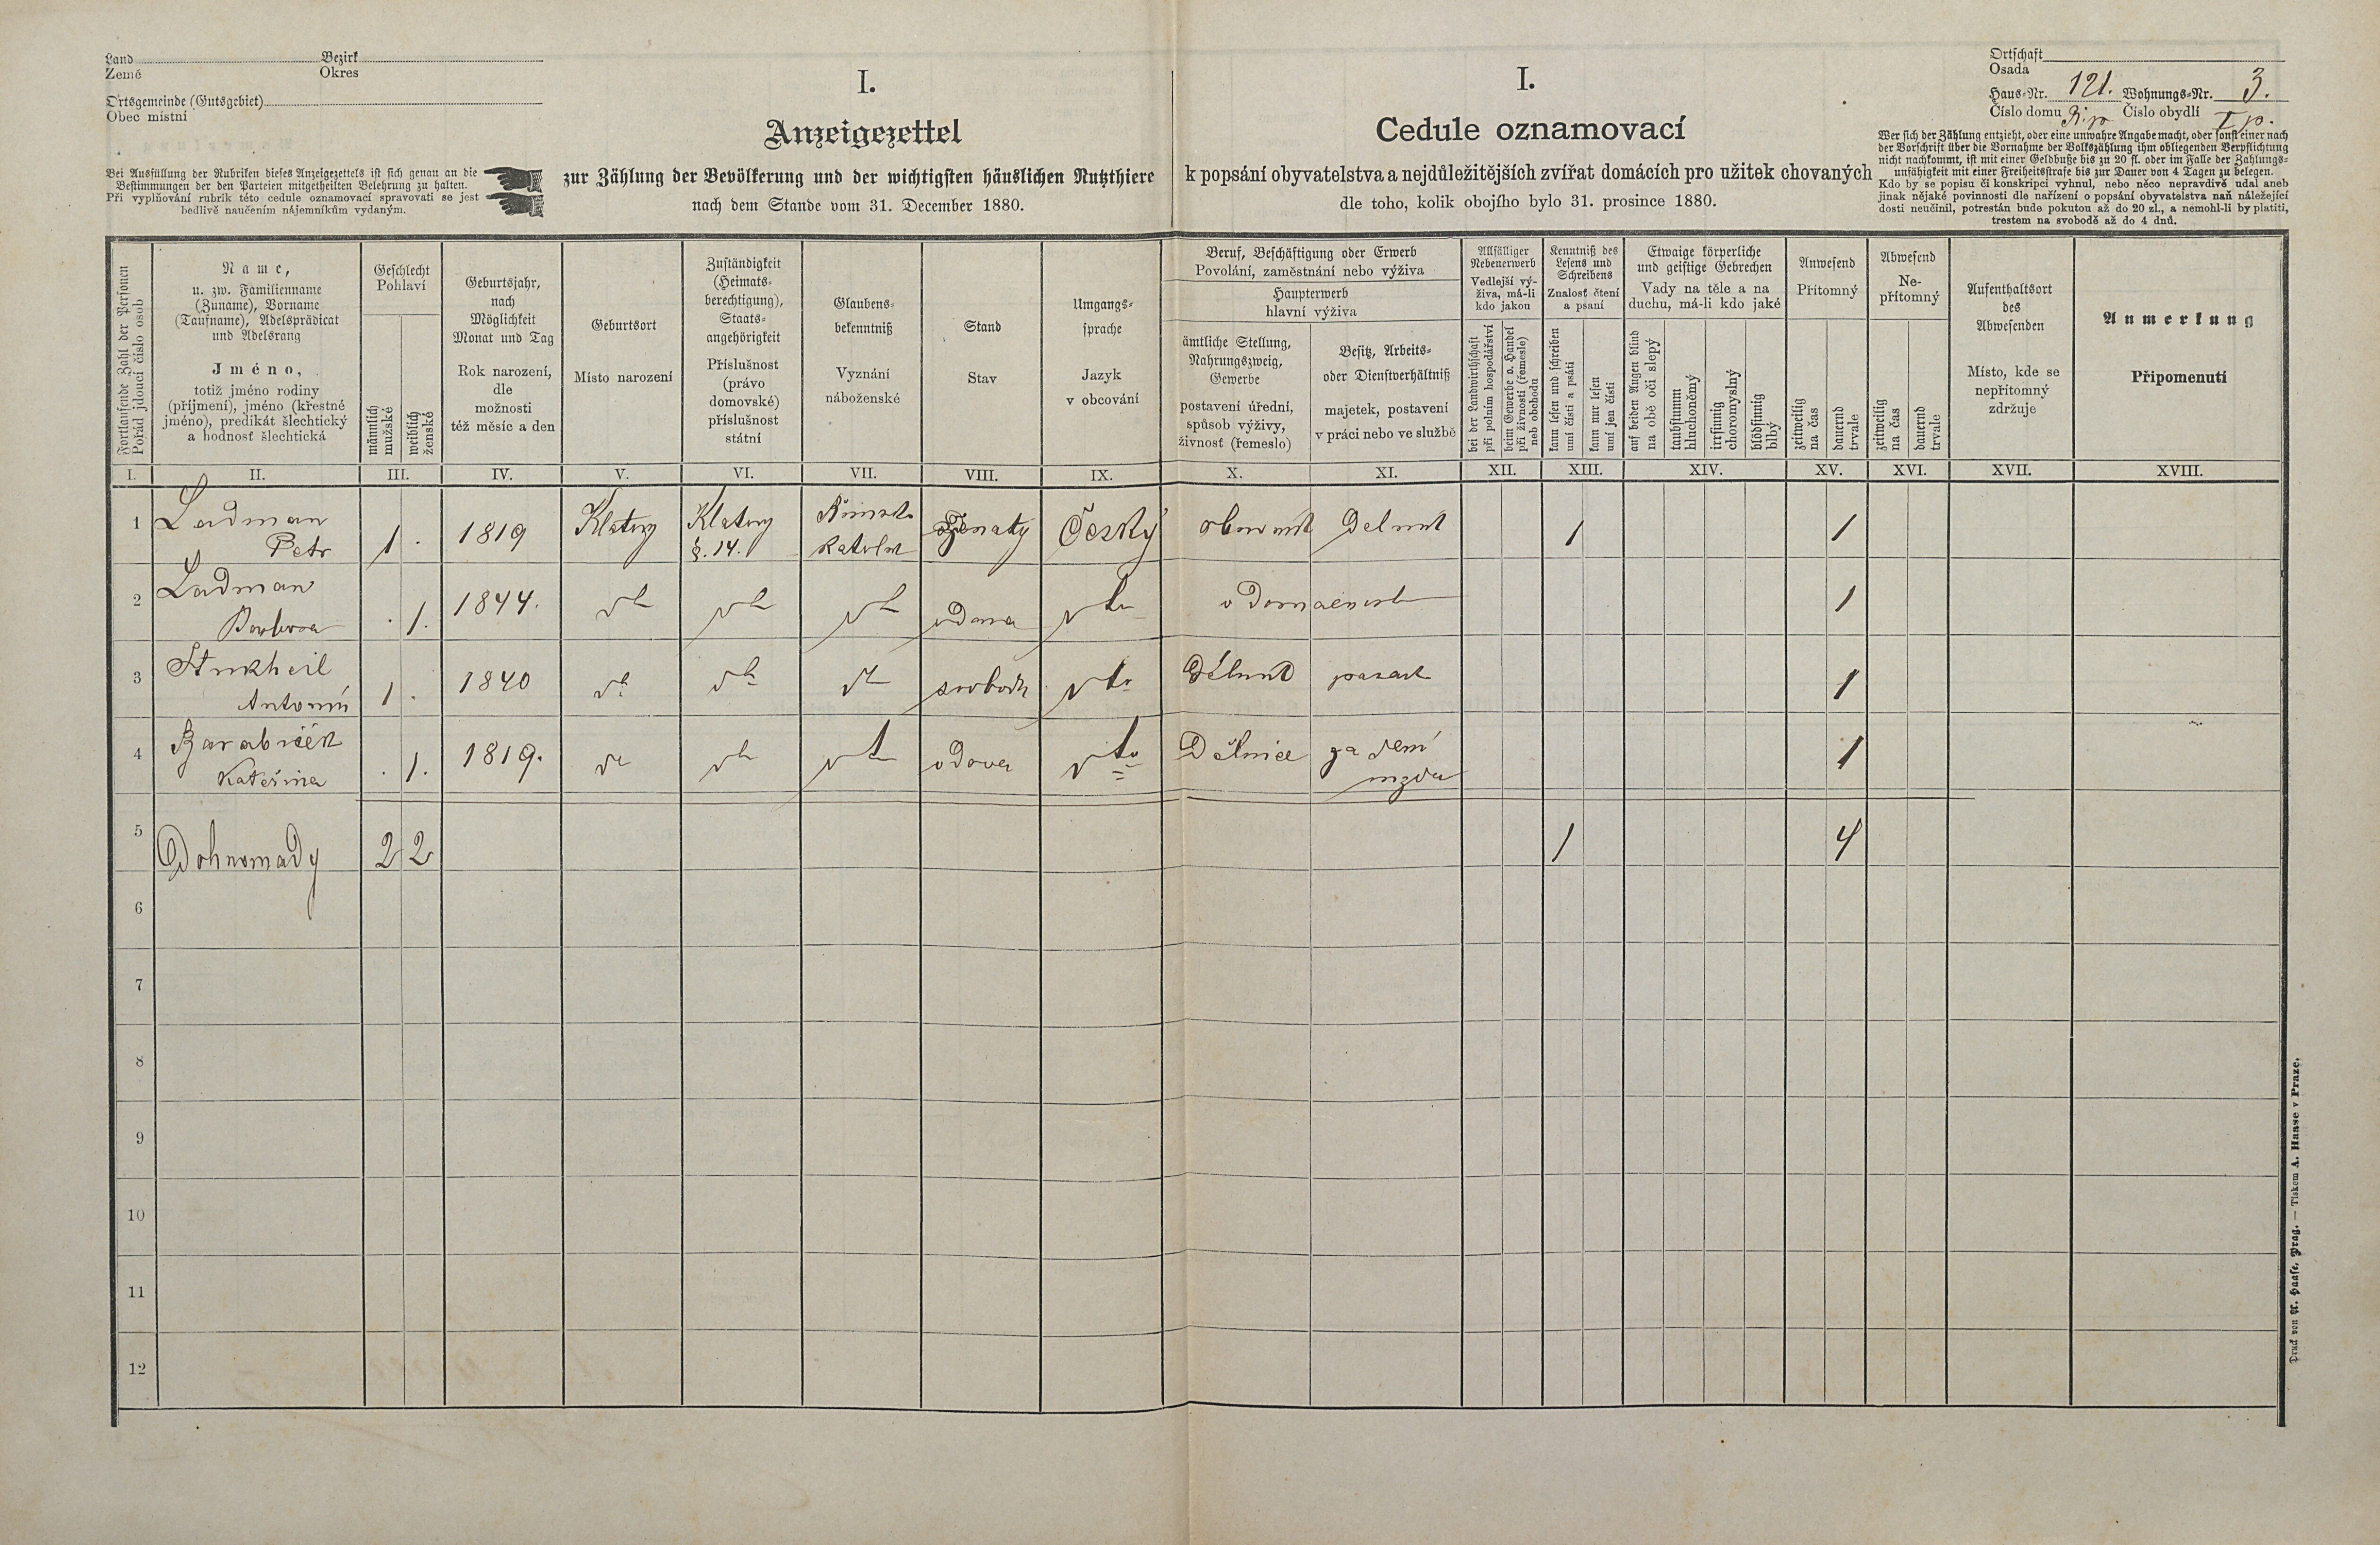 Land Bezirk
Země Okres
Ortsgemeinde (Gutsgebiet)
Obec místní
Bei Ausfüllung der Rubriken dieses Anzeigezettels ist sich genau an die
Bestimmungen der den Parteien mitgetheilten Belehrung zu halten.
Při vyplňování rubrik této cedule oznamovací spravovati se jest
bedlivě naučením nájemníkům vydaným.
I.
Anzeigezettel
zur Zählung der Bevölkerung und der wichtigsten häuslichen Nutzthiere
nach dem Stande vom 31. December 1880.
I.
Cedule oznamovací
k popsání obyvatelstva a nejdůležitějších zvířat domácích pro užitek chovaných
dle toho, kolik obojího bylo 31. prosince 1880.
Ortschaft
Osada
Haus-Nr. 121. Wohnungs-Nr. 3.
Číslo domu Číslo obydlí
Wer sich der Zählung entzieht, oder eine unwahre Angabe macht, oder sonst einer nach
der Vorschrift über die Vornahme der Volkszählung ihm obliegenden Verpflichtung
nicht nachkommt, ist mit einer Geldbuße bis zu 20 fl. oder im Falle der Zahlungs-
unfähigkeit mit einer Freiheitsstrafe bis zur Dauer von 4 Tagen zu belegen.
Kdo by se popisu či konskripci vyhnul, nebo něco nepravdivě udal aneb
jinak nějaké povinnosti dle nařízení o popsání obyvatelstva naň náležející
dosti neučinil, potrestán bude pokutou až do 20 zl., a nemohl-li by platiti,
trestem na svobodě až do 4 dnů.
Fortlaufende Zahl der Personen
Pořád jdoucí číslo osob
Name,
u. zw. Familienname
(Zuname), Vorname
(Taufname), Adelsprädicat
und Adelsrang
Jméno,
totiž jméno rodiny
(příjmení), jméno (křestné
jméno), predikát šlechtický
a hodnost šlechtická
Geschlecht
Pohlaví
männlich
mužské
weiblich
ženské
Geburtsjahr,
nach
Möglichkeit
Monat und Tag
Rok narození,
dle
možnosti
též měsíc a den
Geburtsort
Místo narození
Zuständigkeit
(Heimats-
berechtigung),
Staats-
angehörigkeit
Příslušnost
(právo
domovské)
příslušnost
státní
Glaubens-
bekenntniß
Vyznání
náboženské
Stand
Stav
Umgangs-
sprache
Jazyk
v obcování
Beruf, Beschäftigung oder Erwerb
Povolání, zaměstnání nebo výživa
Haupterwerb
hlavní výživa
ämtliche Stellung,
Nahrungszweig,
Gewerbe
postavení úřední,
spůsob výživy,
živnost (řemeslo)
Besitz, Arbeits-
oder Dienstverhältniß
majetek, postavení
v práci nebo ve službě
Allfälliger
Nebenerwerb
Vedlejší vý-
živa, má-li
kdo jakou
bei der Landwirthschaft
při polním hospodářství
beim Gewerbe o. Handel
při živnosti (řemesle)
neb obchodu
Kenntniß des
Lesens und
Schreibens
Znalost čtení
a psaní
kann lesen und schreiben
umí čísti a psáti
kann nur lesen
umí jen čísti
Etwaige körperliche
und geistige Gebrechen
Vady na těle a na
duchu, má-li kdo jaké
auf beiden Augen blind
na obě oči slepý
taubstumm
hluchoněmý
irrsinnig
choromyslný
blödsinnig
blbý
Anwesend
Přítomný
zeitweilig
na čas
dauernd
trvale
Abwesend
Ne-
přítomný
zeitweilig
na čas
dauernd
trvale
Aufenthaltsort
des
Abwesenden
Místo, kde se
nepřítomný
zdržuje
Anmerkung
Připomenutí
I. II. III. IV. V. VI. VII. VIII. IX. X. XI. XII. XIII. XIV. XV. XVI. XVII. XVIII.
1 Ladman 1819 Klatovy Klatovy ženatý Český 1 1
Petr 1 . §. 14.
2 Ladman 1844. 1
. 1. vdova
3 1840 1
Antonín 1 .
4 1819. vdova Dělnice za denní 1
Kateřina . 1. mzdu
5 Dohromady 2 2 1 4
6
7
8
9
10
11
12
Druck von A. Haase, Prag. — Tiskem A. Haase v Praze.